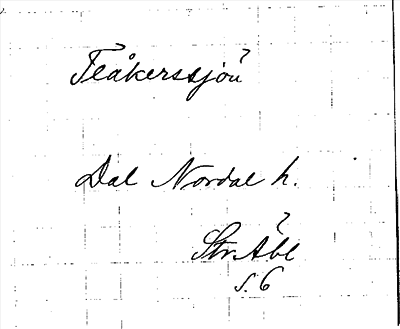 Flåkerssjön?
Dal Nordal h.
Str Åbl ?
s. 6